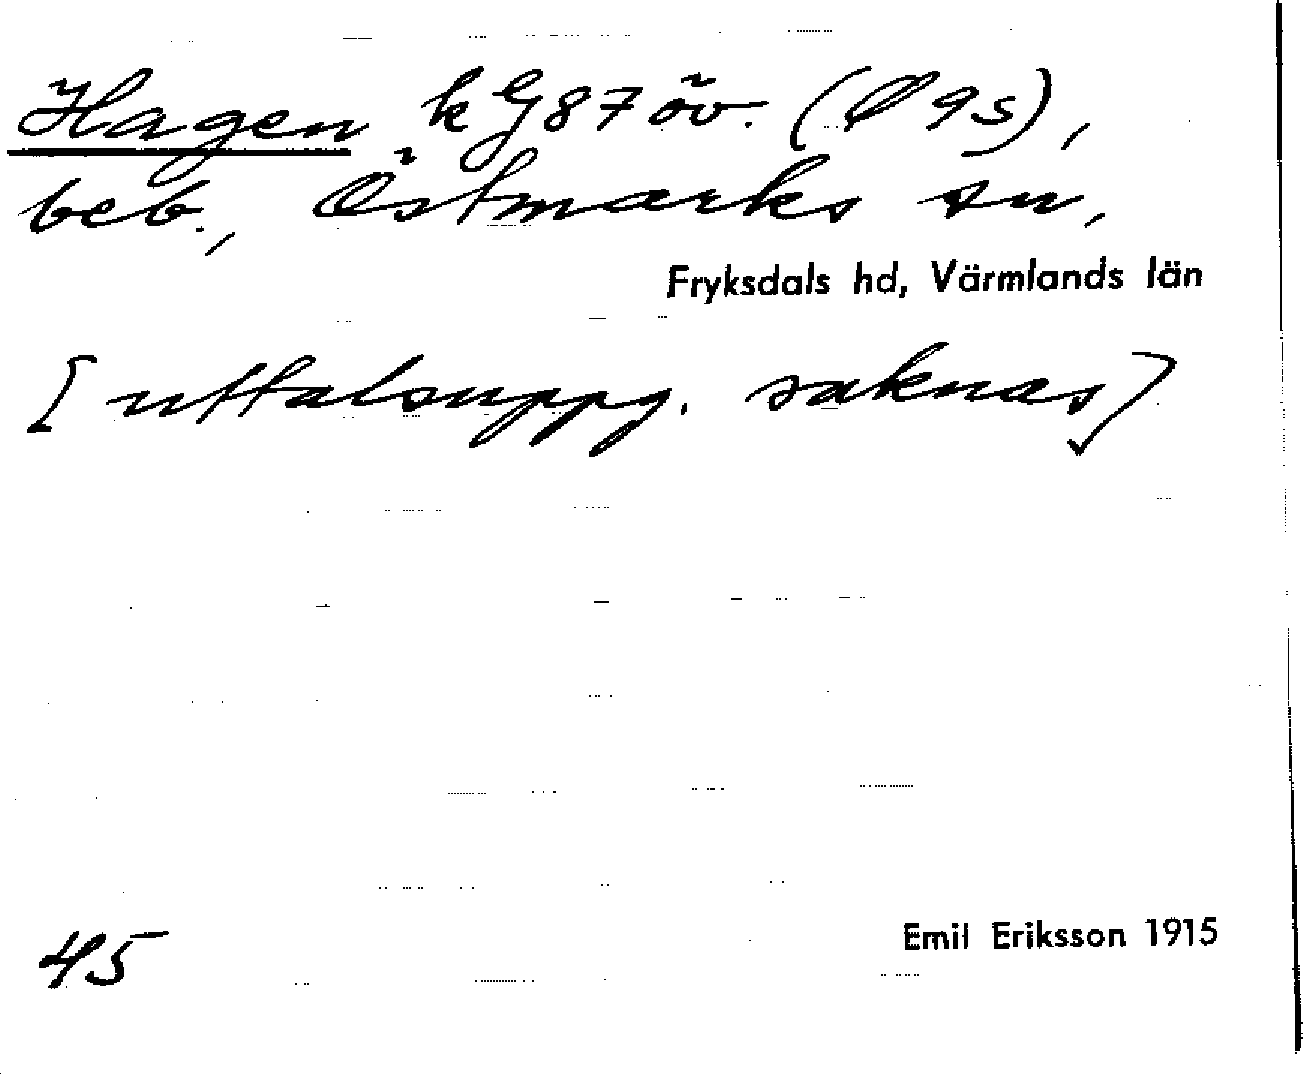 Hagen kG87öv. (Ø 9s),
beb., Östmarks sn,
Fryksdals hd, Värmlands län
[uttalsuppg. saknas]
45
Emil Eriksson 1915